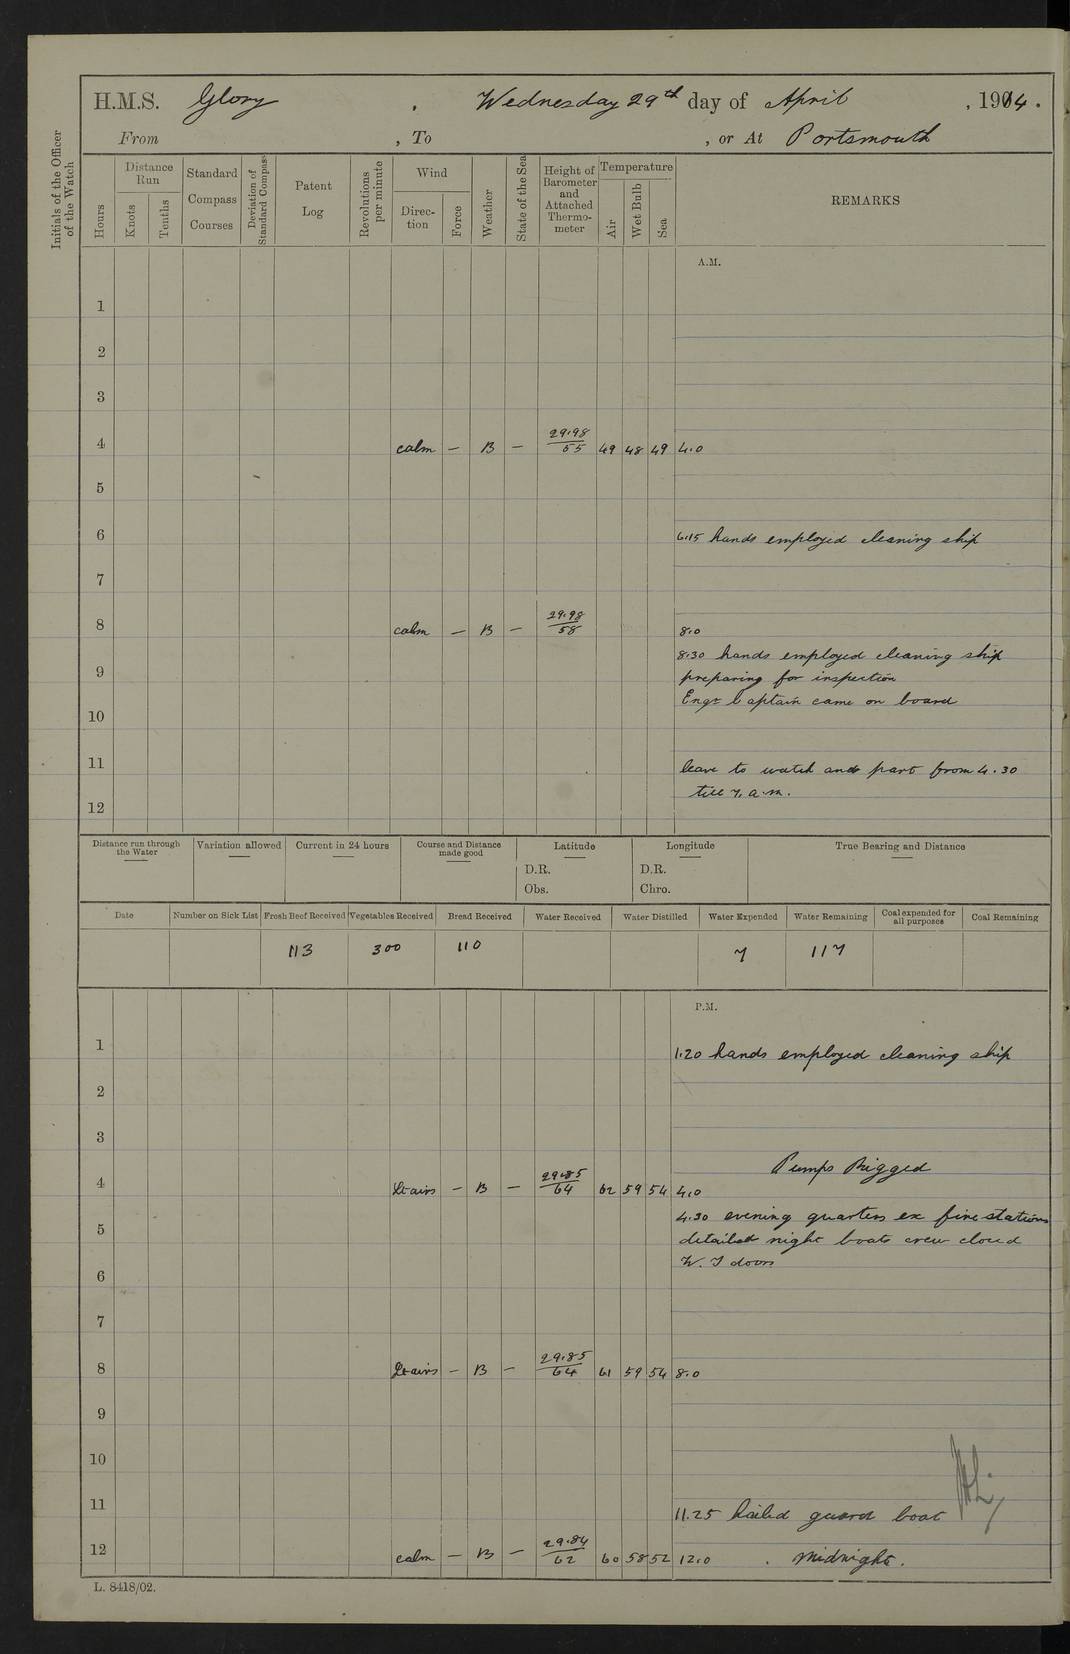 H.M.S. Glory , Wednesday 29th day of April , 1914.
From , To , or At Portsmouth
Initials of the Officer of the Watch
Hours
Distance Run
Knots
Tenths
Standard Compass Courses
Deviation of Standard Compass
Patent Log
Revolutions per minute
Wind
Direc-tion
Force
Weather
State of the Sea
Height of Barometer and Attached Thermo-meter
Temperature
Air
Wet Bulb
Sea
REMARKS
A.M.
1
2
3
4 calm — B — 29.98/55 49 48 49 4.0
5
6 6.15 hands employed cleaning ship
7
8 calm — B — 29.98/58 8.0
8.30 hands employed cleaning ship
9 preparing for inspection
Engr Captain came on board
10
11 leave to watch and part from 4.30
till 7. a.m.
12
Distance run through the Water
Variation allowed
Current in 24 hours
Course and Distance made good
Latitude
D.R.
Obs.
Longitude
D.R.
Chro.
True Bearing and Distance
Date
Number on Sick List
Fresh Beef Received
Vegetables Received
Bread Received
Water Received
Water Distilled
Water Expended
Water Remaining
Coal expended for all purposes
Coal Remaining
113 300 110 7 117
P.M.
1 1.20 hands employed cleaning ship
2
3
Pumps Rigged
4 Lt airs — B — 29.85/64 62 59 54 4.0
4.30 evening quarters ex fire stations
5 detailed night boats crew closed
W. T doors
6
7
8 Lt airs — B — 29.85/64 61 59 54 8.0
9
10
11 11.25 hailed guard boat
12 calm — B — 29.84/62 60 58 52 12.0 . Midnight.
L. 8418/02.